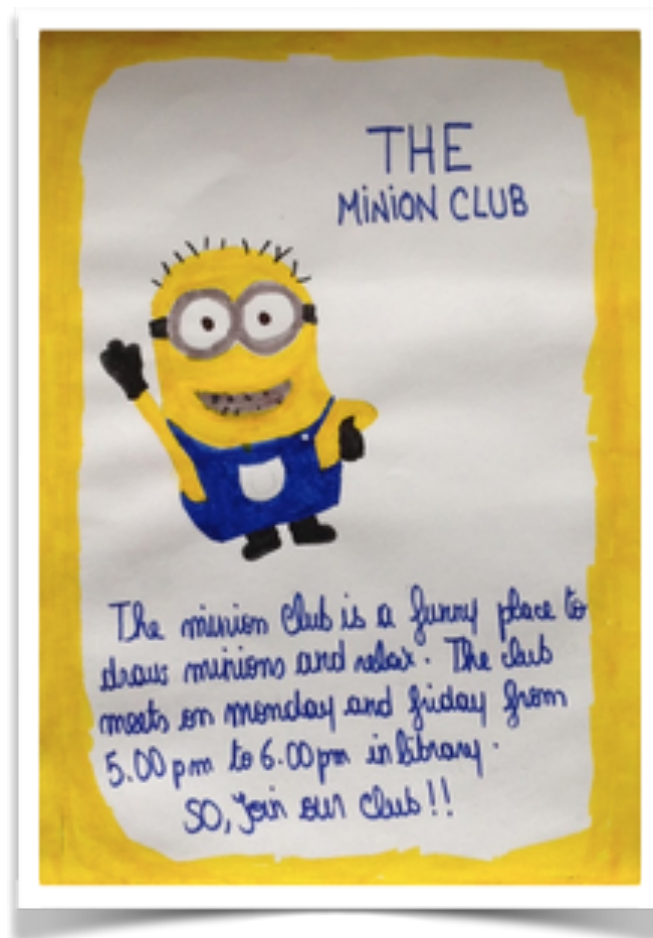 THE
MINION CLUB
The minion Club is a funny place to
draw minions and relax. The club
meets on monday and friday from
5.00 pm to 6.00 pm in library.
SO, Join our Club!!